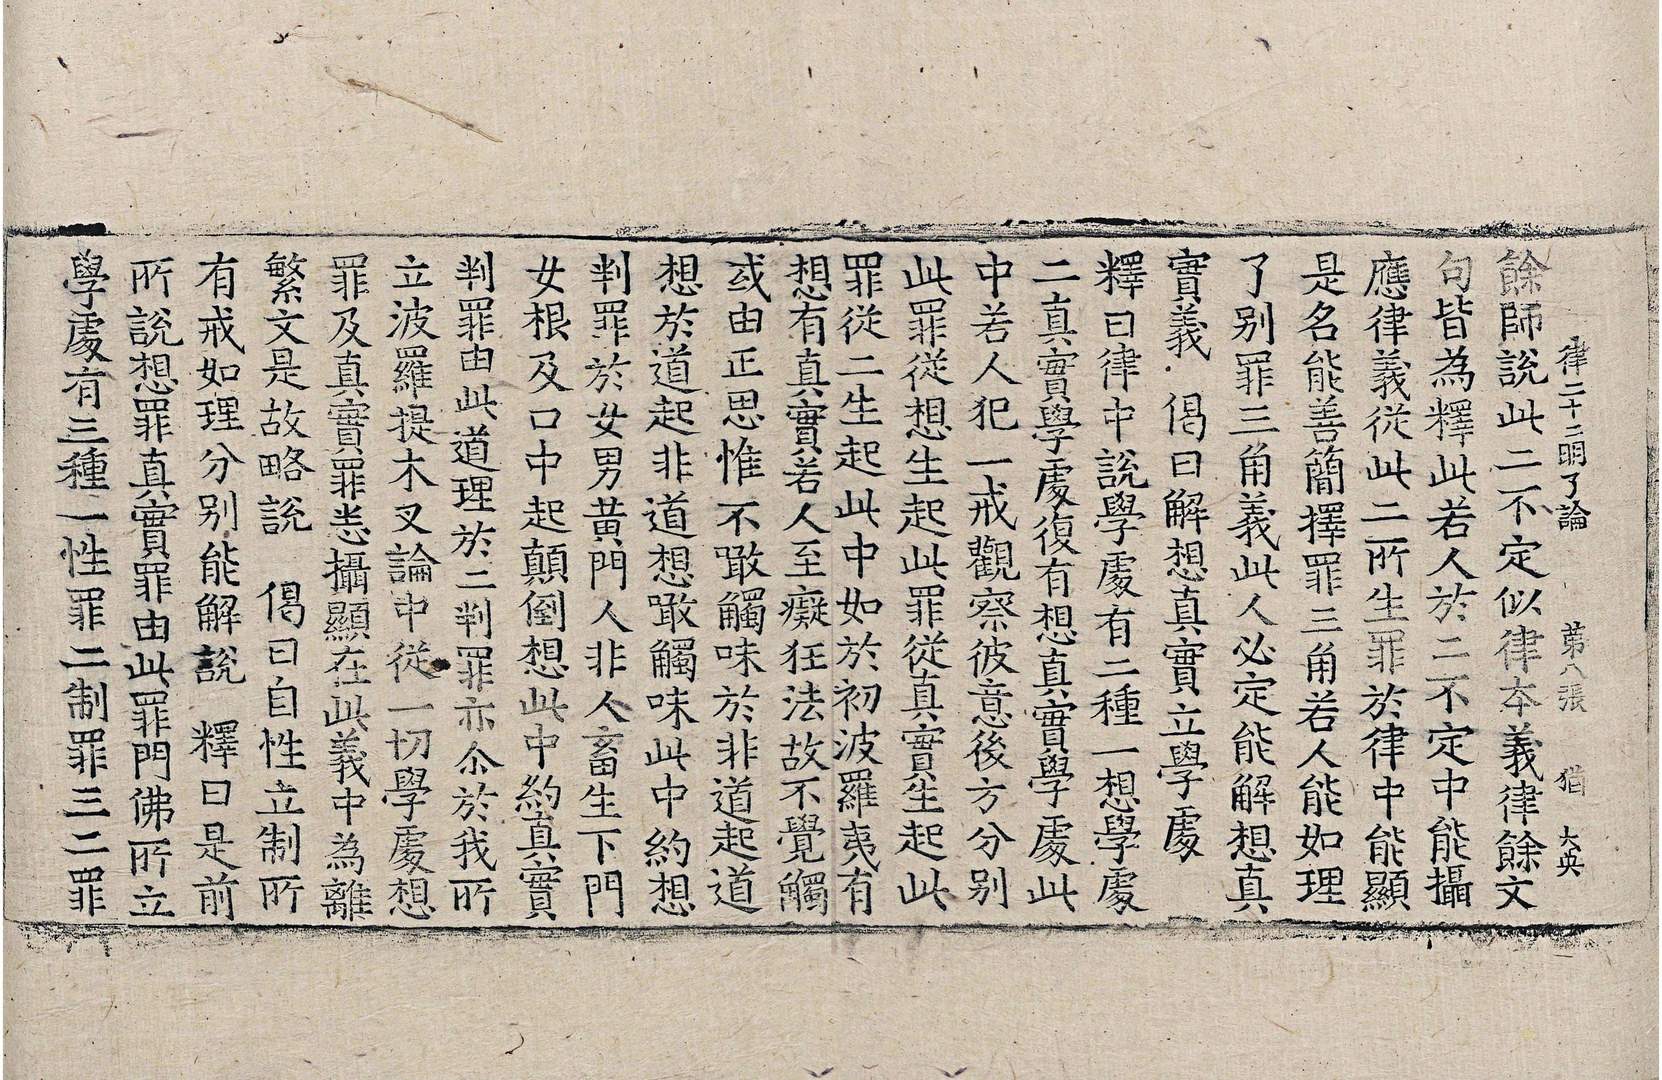 律二十二明了論 第八張 猶 大英
餘師說此二不定似律本義律餘文
句皆為釋此若人於二不定中能攝
應律義從此二所生罪於律中能顯
是名能善簡擇罪三角若人能如理
了別罪三角義此人必定能解想真
實義 偈曰解想真實立學處
釋曰律中說學處有二種一想學處
二真實學處復有想真實學處此
中若人犯一戒觀察彼意後方分別
此罪從想生起此罪從真實生起此
罪從二生起此中如於初波羅夷有
想有真實若人至癡狂法故不覺觸
或由正思惟不噉觸味於非道起道
想於道起非道想噉觸味此中約想
判罪於女男黃門人非人畜生下門
女根及口中起顛倒想此中約真實
判罪由此道理於二判罪亦尒於我所
立波羅提木叉論中從一切學處想
罪及真實罪悉攝顯在此義中為離
繁文是故略說 偈曰自性立制所
有戒如理分別能解說 釋曰是前
所說想罪真實罪由此罪門佛所立
學處有三種一性罪二制罪三二罪